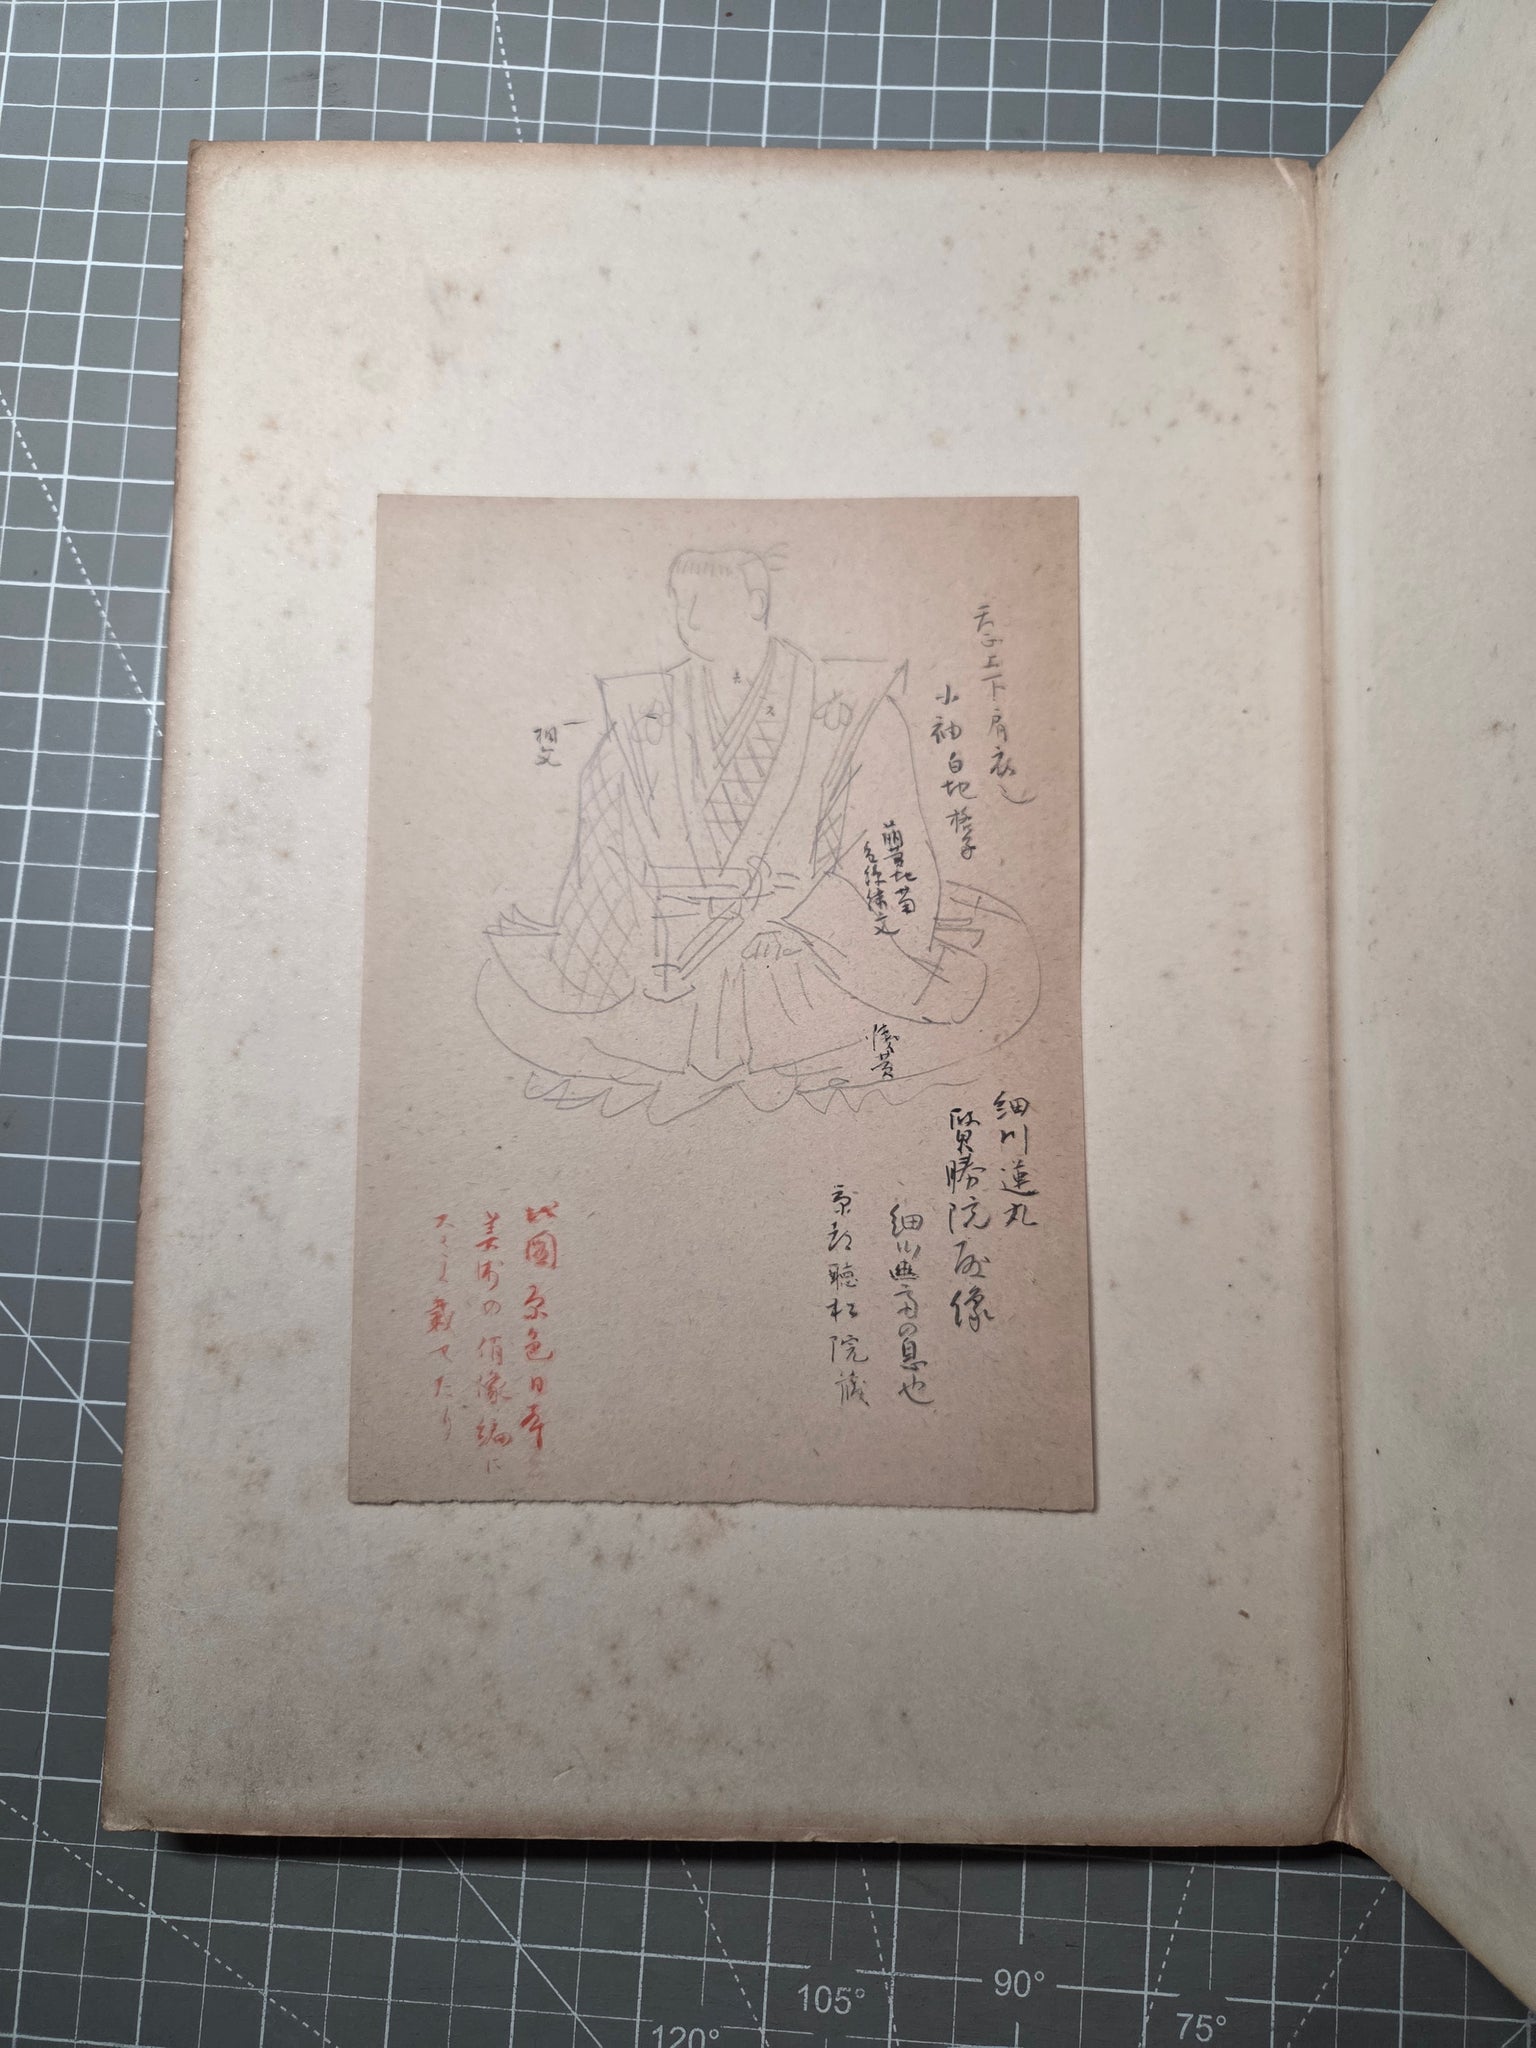 天正上下肩衣
小袖白地格子
桐文
萌黄地菊
浅黄
細川蓮丸
賢勝院殿像
細川幽斎の息也
京都聴松院蔵
此圖原色日本
美術の肖像編に
載せたり
105°
90°
75°
120°